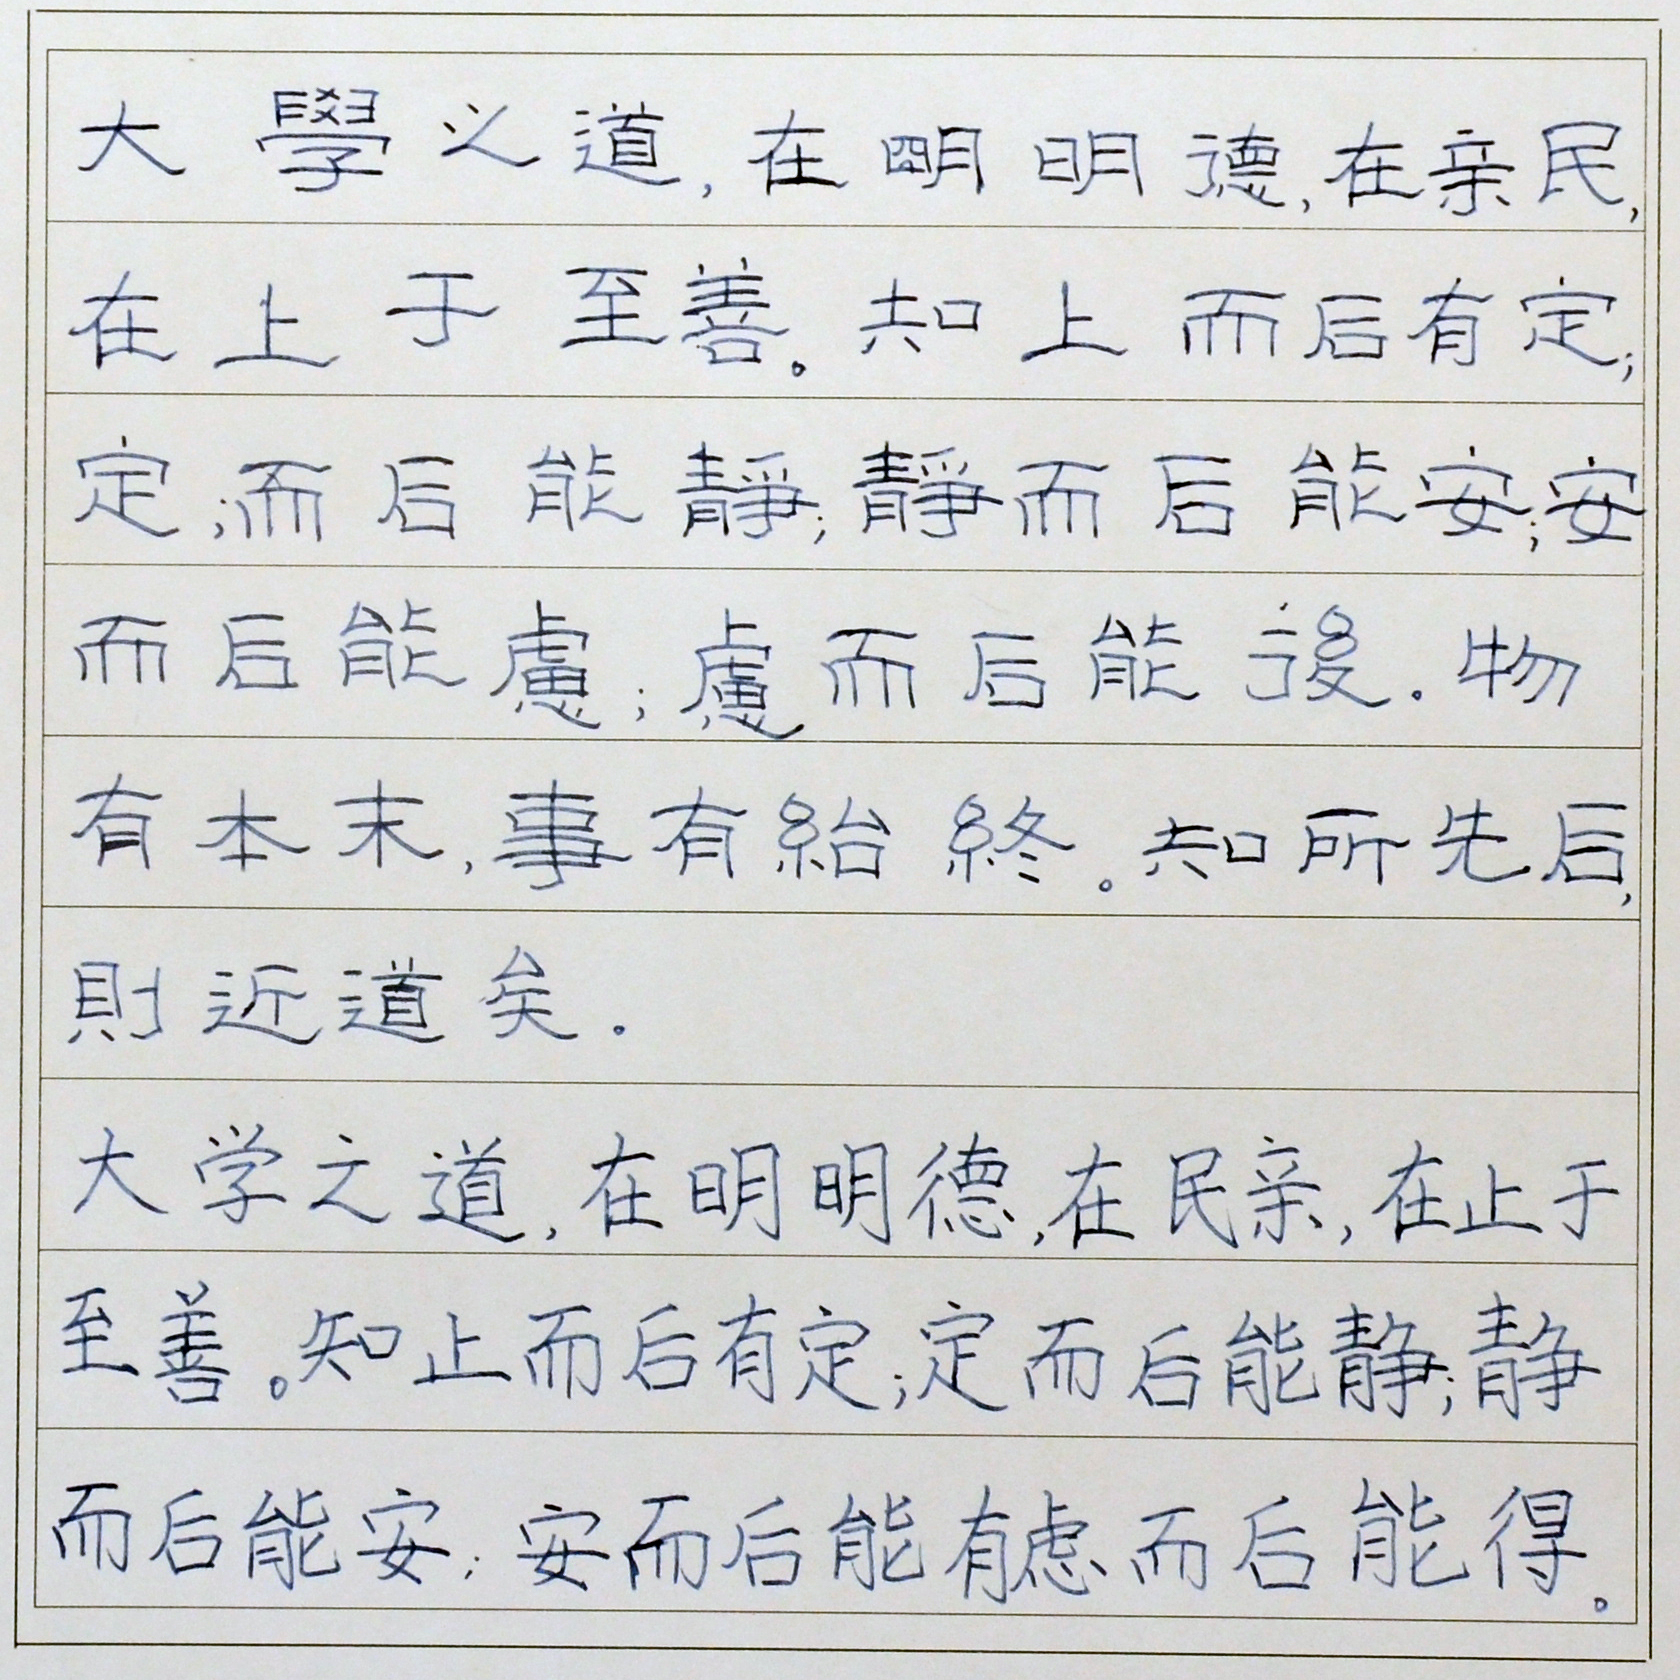 大學之道,在明明德,在亲民,
在上于至善。知上而后有定;
定;而后能靜;靜而后能安;安
而后能慮;慮而后能後.物
有本末,事有紿終。知所先后,
則近道矣.
大学之道,在明明德,在民亲,在止于
至善。知止而后有定;定而后能静;静
而后能安;安而后能有虑而后能得。